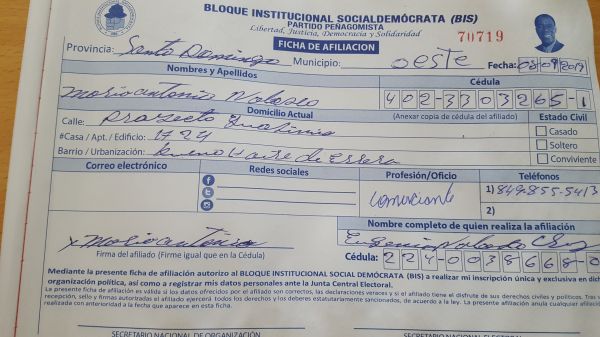 BLOQUE INSTITUCIONAL SOCIALDEMÓCRATA (BIS)
PARTIDO PEÑAGOMISTA
Libertad, Justicia, Democracia y Solidaridad
70719
FICHA DE AFILIACION
Provincia: Santo Domingo Municipio: oeste Fecha: 08/09/2019
Nombres y Apellidos Cédula
Mario antonio 402-3303265-1
Domicilio Actual (Anexar copia de cédula del afiliado)
Calle: Proyecto
Estado Civil
#Casa / Apt. / Edificio: 1724
Casado
Soltero
Barrio / Urbanización: de
Conviviente
Correo electrónico Redes sociales Profesión/Oficio Teléfonos
comerciante
1) 849-855-5413
2)
Nombre completo de quien realiza la afiliación
x Mario antonio
Eugenio
Firma del afiliado (Firme igual que en la Cédula)
Cédula: 224-0038668-0
Mediante la presente ficha de afiliación autorizo al BLOQUE INSTITUCIONAL SOCIAL DEMÓCRATA (BIS) a realizar mi inscripción única y exclusiva en dich
organización política, así como a registrar mis datos personales ante la Junta Central Electoral.
La presente ficha de afiliación es válida si los datos ofrecidos por el afiliado son correctos, las declaraciones veraces y si el afiliado tiene el disfrute de sus derechos civiles y políticos. Tras
recepción, sello y firmas autorizadas el afiliado ejercerá todos los derechos y los deberes estatutariamente sancionados, de acuerdo a la ley. La presente afiliación anula cualquier afiliación
realizada con anterioridad a la fecha que aparece en esta ficha.
SECRETARIO NACIONAL DE ORGANIZACIÓN SECRETARIO NACIONAL ELECTORAL